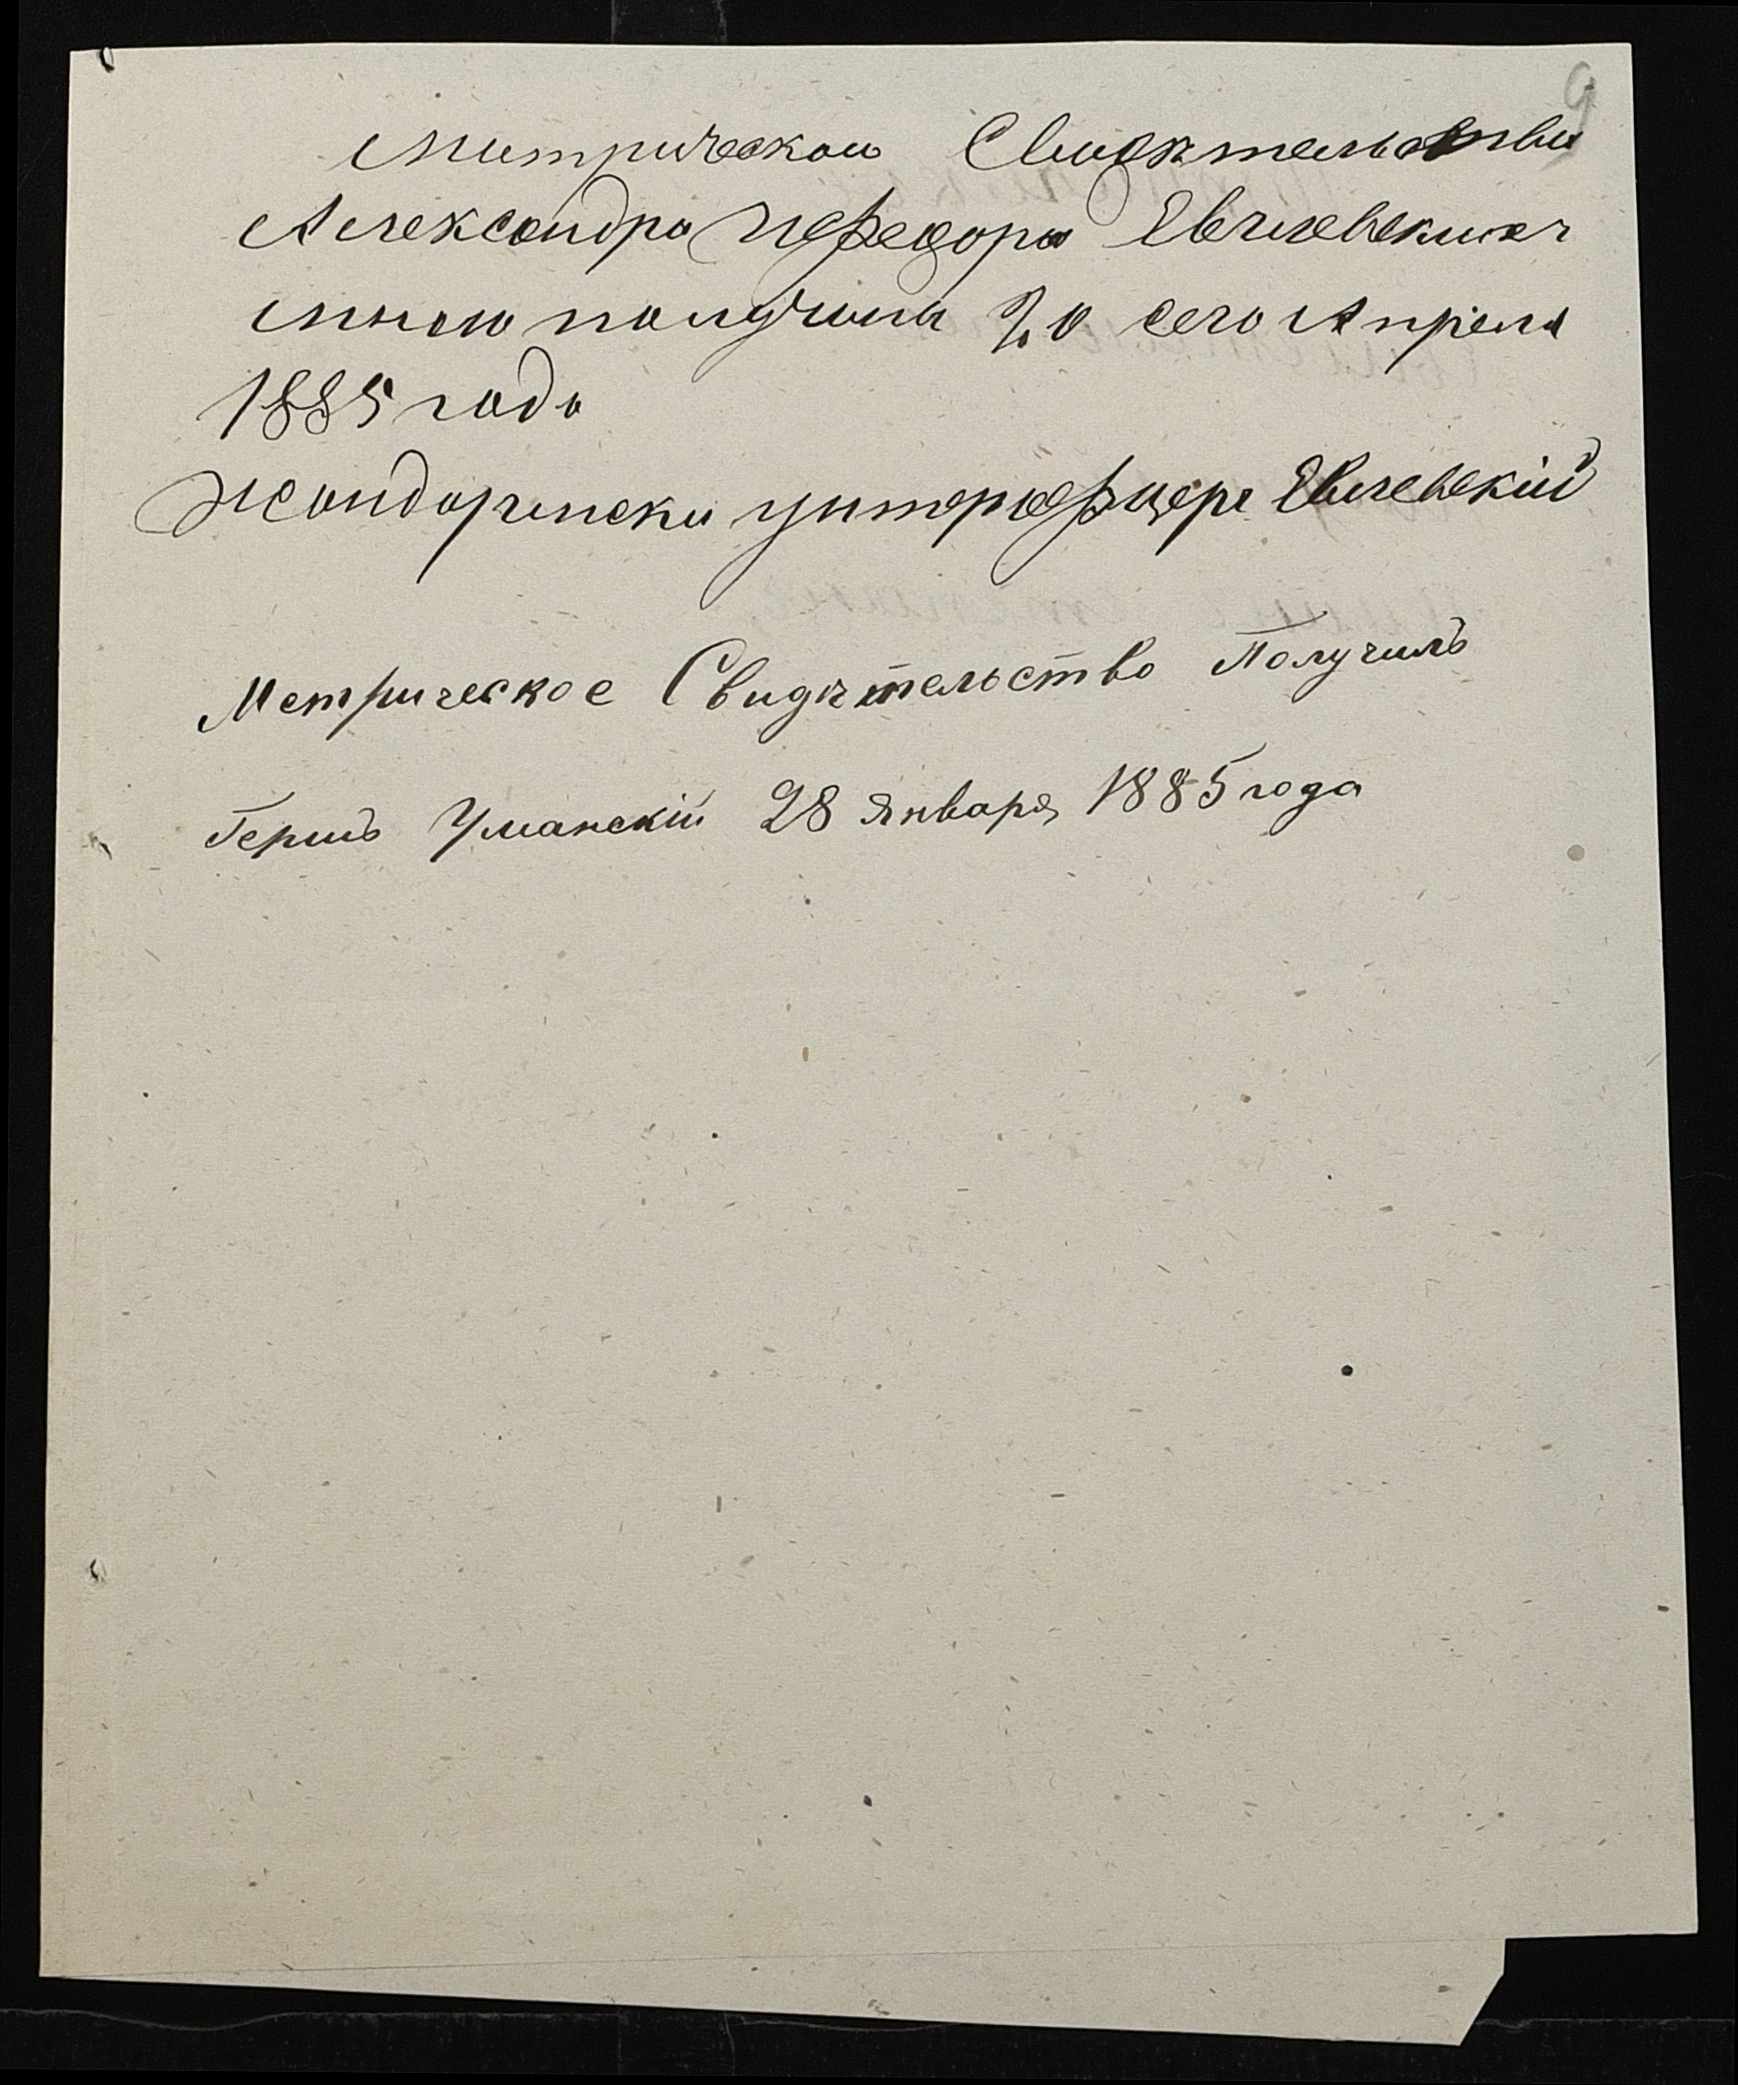 9
Митрическои Свидетельства
Александра и Федора Евчевских
мною получина 20 сего Апреля
1885 года
Жондармски унтерофицере Евчевскій
Метрическое Свидѣтельство Получилъ
Гершъ Уманскій 28 Января 1885 года